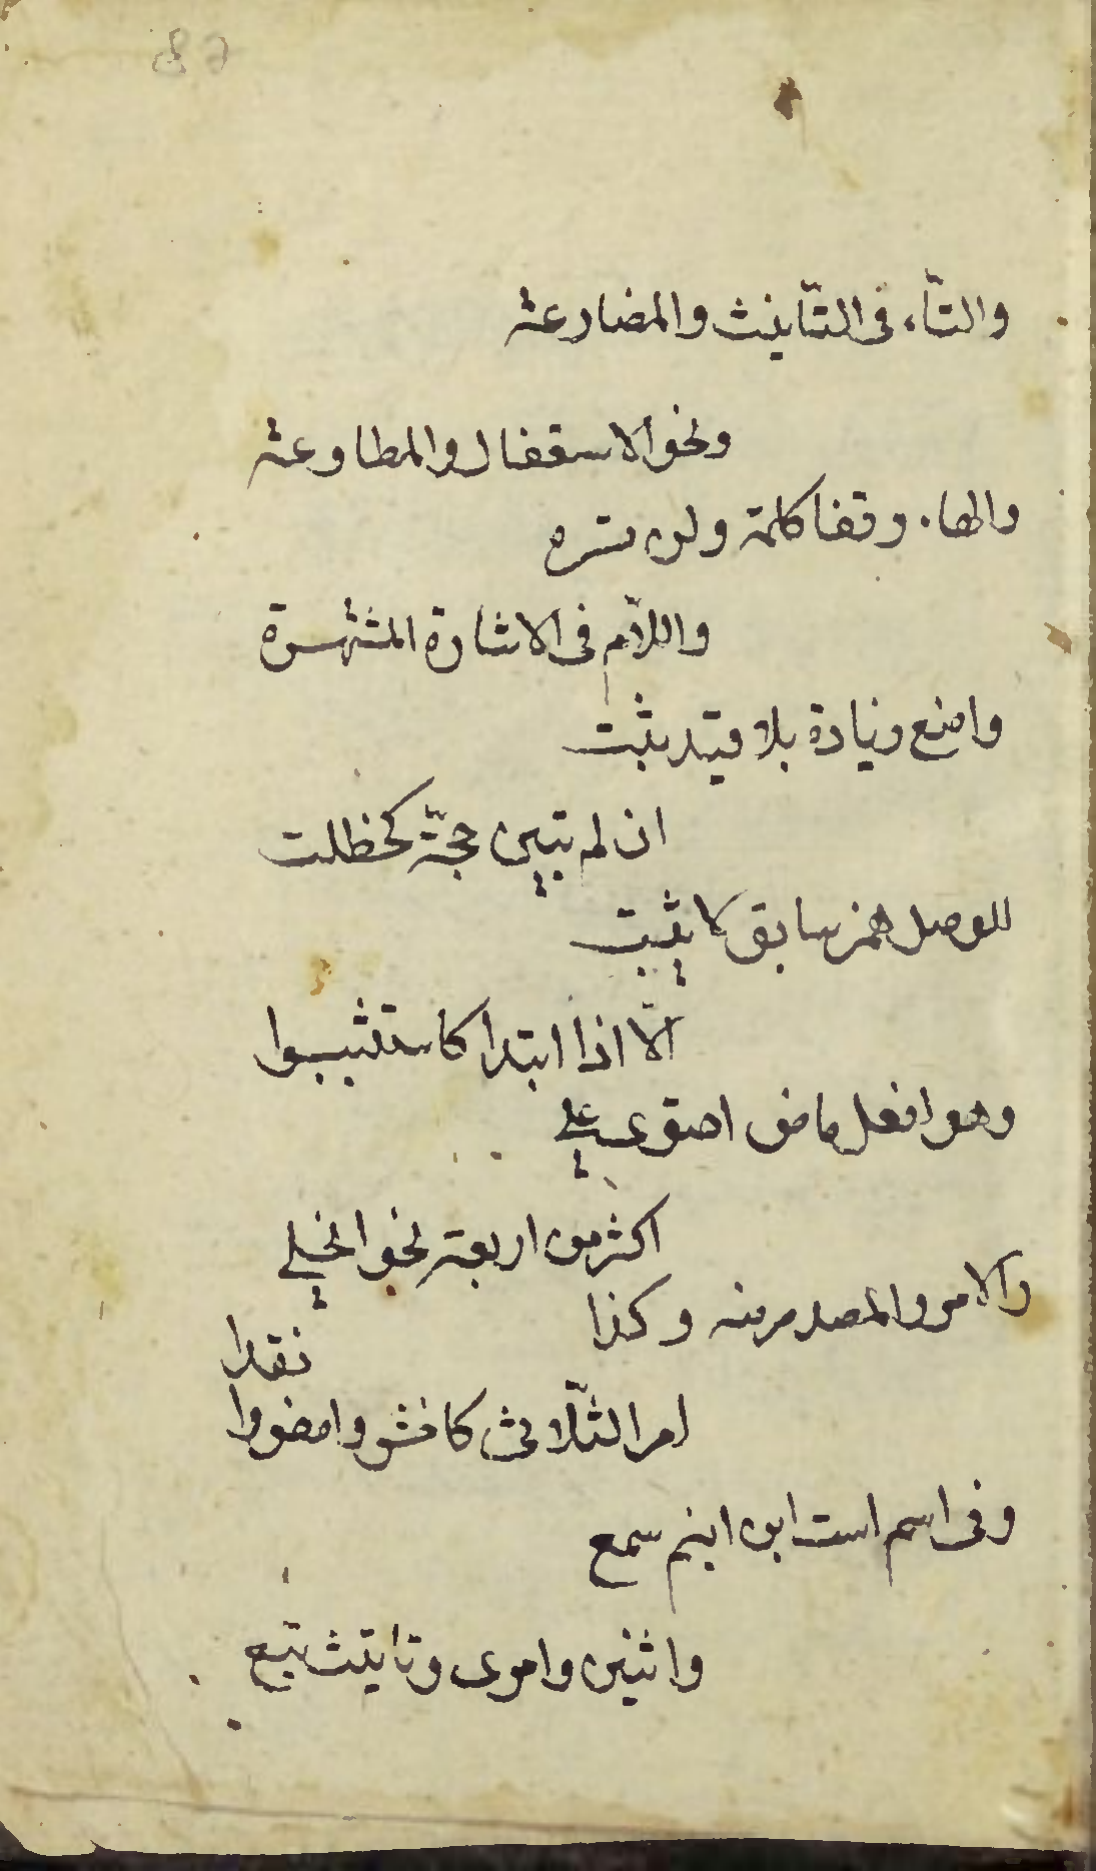 والتّاء فى التّأنيث والمضارعة
ونحو الاستفعال والمطاوعة
والهاء وقفا كلمة ولن تره
واللاّم فى الاشارة المشتهرة
وامنع زيادة بلا قيد ثبت
ان لم تبين حجّة كحظلت
للوصل همز سابق لا يثبت
الاّ اذا ابتدا كاستثبتوا
وهو لفعل ماض احتوى على
اكثر من اربعة نحو انجلى
والامر والمصدر منه وكذا
امر الثّلاثى كاخش وامض وا
نفذا
وفى اسم است ابن ابنم سمع
واثنين وامرى وتانيث تبع